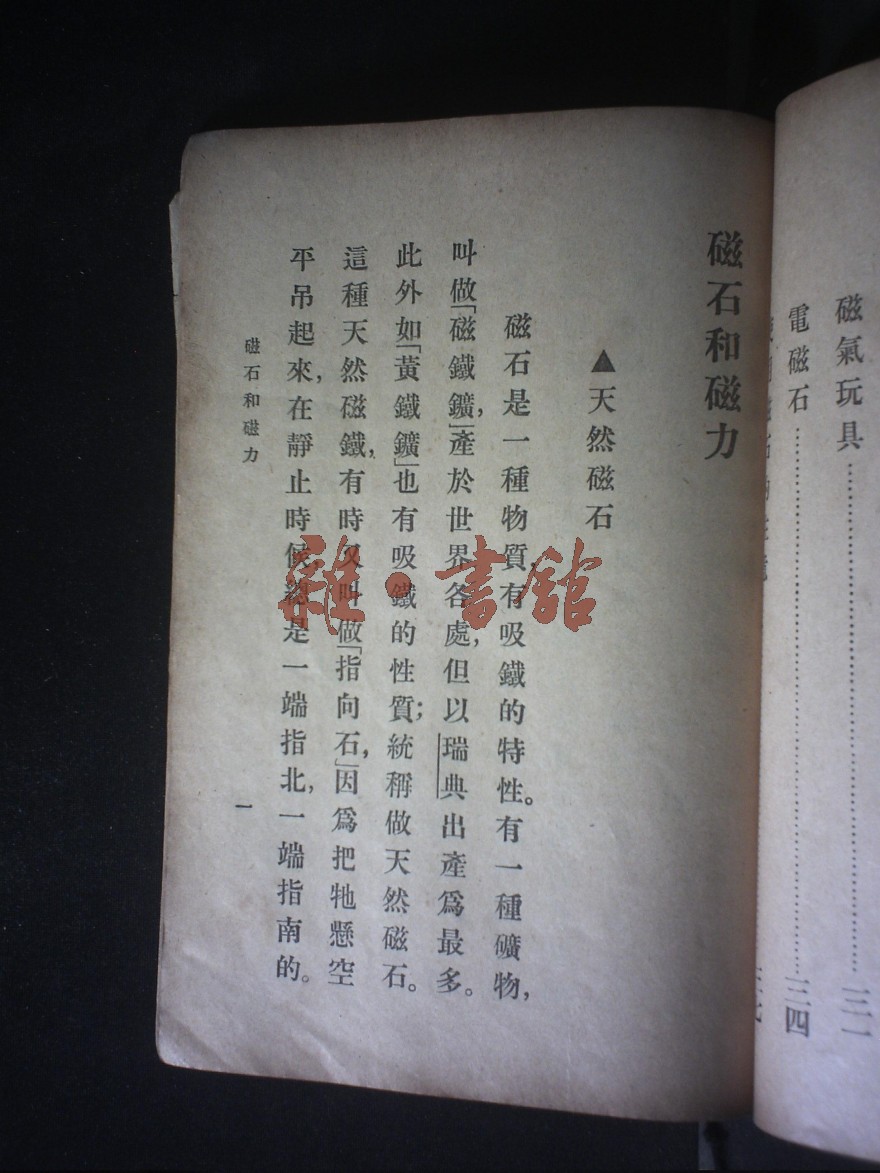 磁氣玩具……三一
電磁石……三四
磁石和磁力
▲天然磁石
磁石是一種物質,有吸鐵的特性。有一種礦物,
叫做「磁鐵鑛」,產於世界各處,但以瑞典出產爲最多。
此外如「黃鐵鑛」也有吸鐵的性質;統稱做天然磁石。
這種天然磁鐵,有時又叫做「指向石」,因爲把牠懸空
平吊起來,在靜止時候,總是一端指北,一端指南的。
磁石和磁力
一
雜·書館